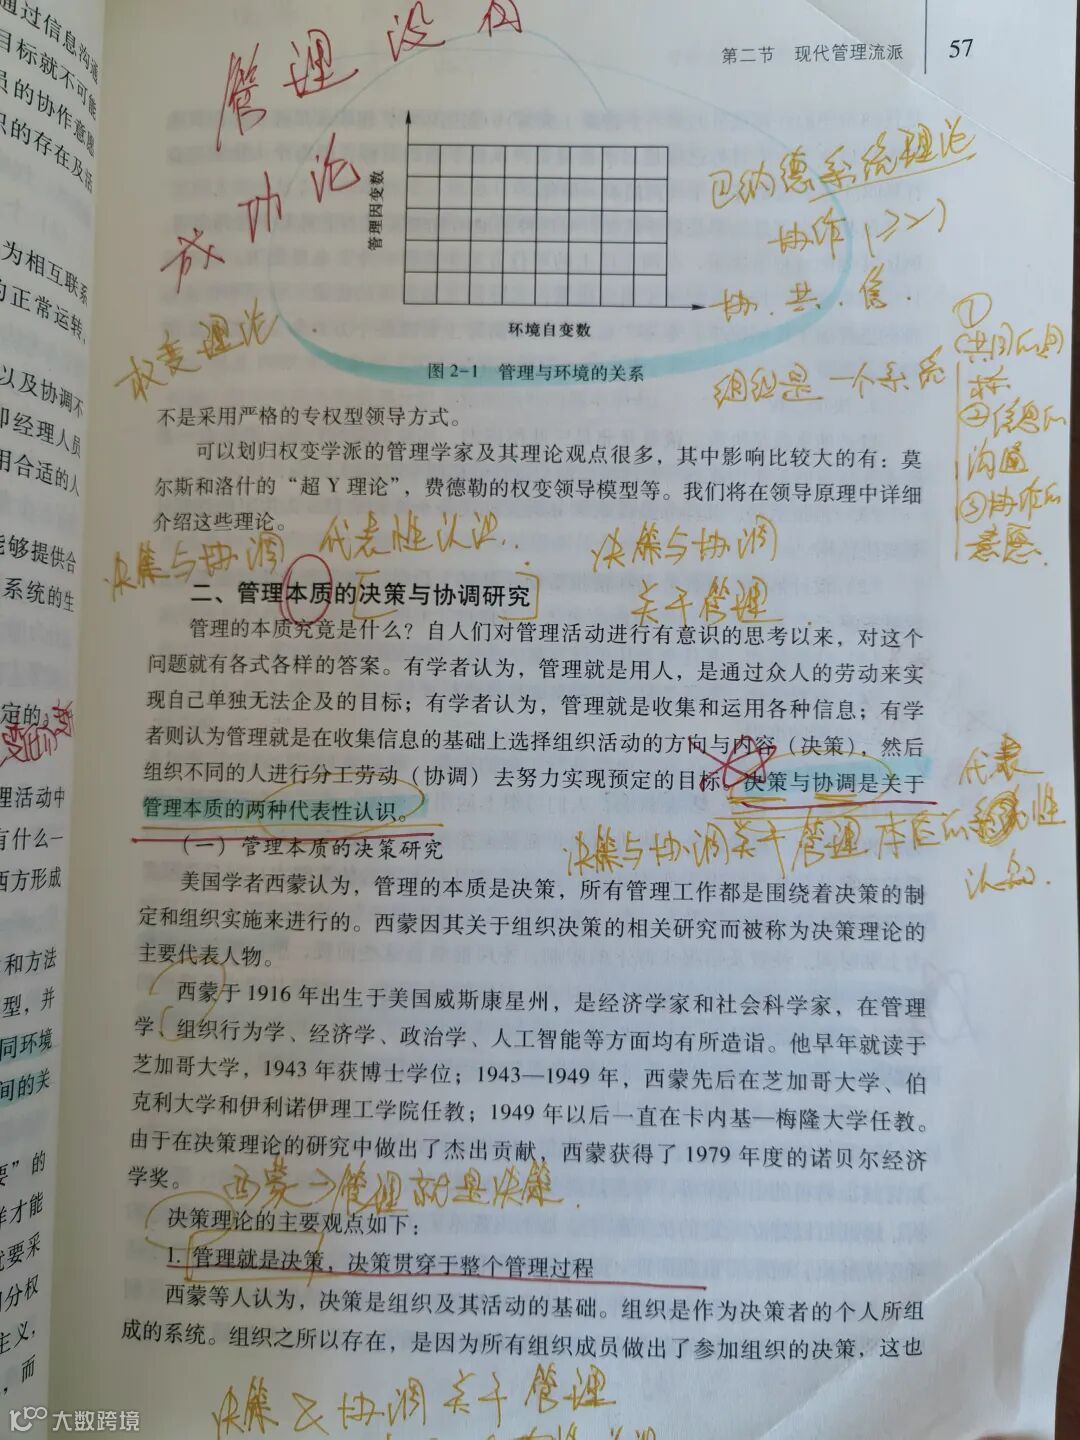 通过信息沟通
目标就不可能
员的协作意愿
织的存在及活
为相互联系
的正常运转,
以及协调不
即经理人员
用合适的人
能够提供合
系统的生
定的,
理活动中
有什么一
西方形成
和方法
型，并
同环境
间的关
要”的
样才能
就要采
分权
主义,
，而
第二节 现代管理流派 57
管理没有
成功论
管理因变数
环境自变数
图 2-1 管理与环境的关系
巴纳德系统理论
协作
协.共.信.
组织是一个系统
①
共同的目
标
②信息的
沟通
③协作的
意愿.
权变理论
不是采用严格的专权型领导方式。
可以划归权变学派的管理学家及其理论观点很多，其中影响比较大的有：莫
尔斯和洛什的“超 Y 理论”，费德勒的权变领导模型等。我们将在领导原理中详细
介绍这些理论。
决策与协调 代表性认识.
决策与协调
关于管理.
二、管理本质的决策与协调研究
管理的本质究竟是什么？自人们对管理活动进行有意识的思考以来，对这个
问题就有各式各样的答案。有学者认为，管理就是用人，是通过众人的劳动来实
现自己单独无法企及的目标；有学者认为，管理就是收集和运用各种信息；有学
者则认为管理就是在收集信息的基础上选择组织活动的方向与内容（决策），然后
组织不同的人进行分工劳动（协调）去努力实现预定的目标。决策与协调是关于
管理本质的两种代表性认识。
决策与协调关于管理本质的
代表
性
认知.
（一）管理本质的决策研究
美国学者西蒙认为，管理的本质是决策，所有管理工作都是围绕着决策的制
定和组织实施来进行的。西蒙因其关于组织决策的相关研究而被称为决策理论的
主要代表人物。
西蒙于 1916 年出生于美国威斯康星州，是经济学家和社会科学家，在管理
学、组织行为学、经济学、政治学、人工智能等方面均有所造诣。他早年就读于
芝加哥大学，1943 年获博士学位；1943—1949 年，西蒙先后在芝加哥大学、伯
克利大学和伊利诺伊理工学院任教；1949 年以后一直在卡内基—梅隆大学任教。
由于在决策理论的研究中做出了杰出贡献，西蒙获得了 1979 年度的诺贝尔经济
学奖。
西蒙→管理就是决策.
决策理论的主要观点如下：
1. 管理就是决策，决策贯穿于整个管理过程
西蒙等人认为，决策是组织及其活动的基础。组织是作为决策者的个人所组
成的系统。组织之所以存在，是因为所有组织成员做出了参加组织的决策，这也
决策与协调关于管理
大数跨境